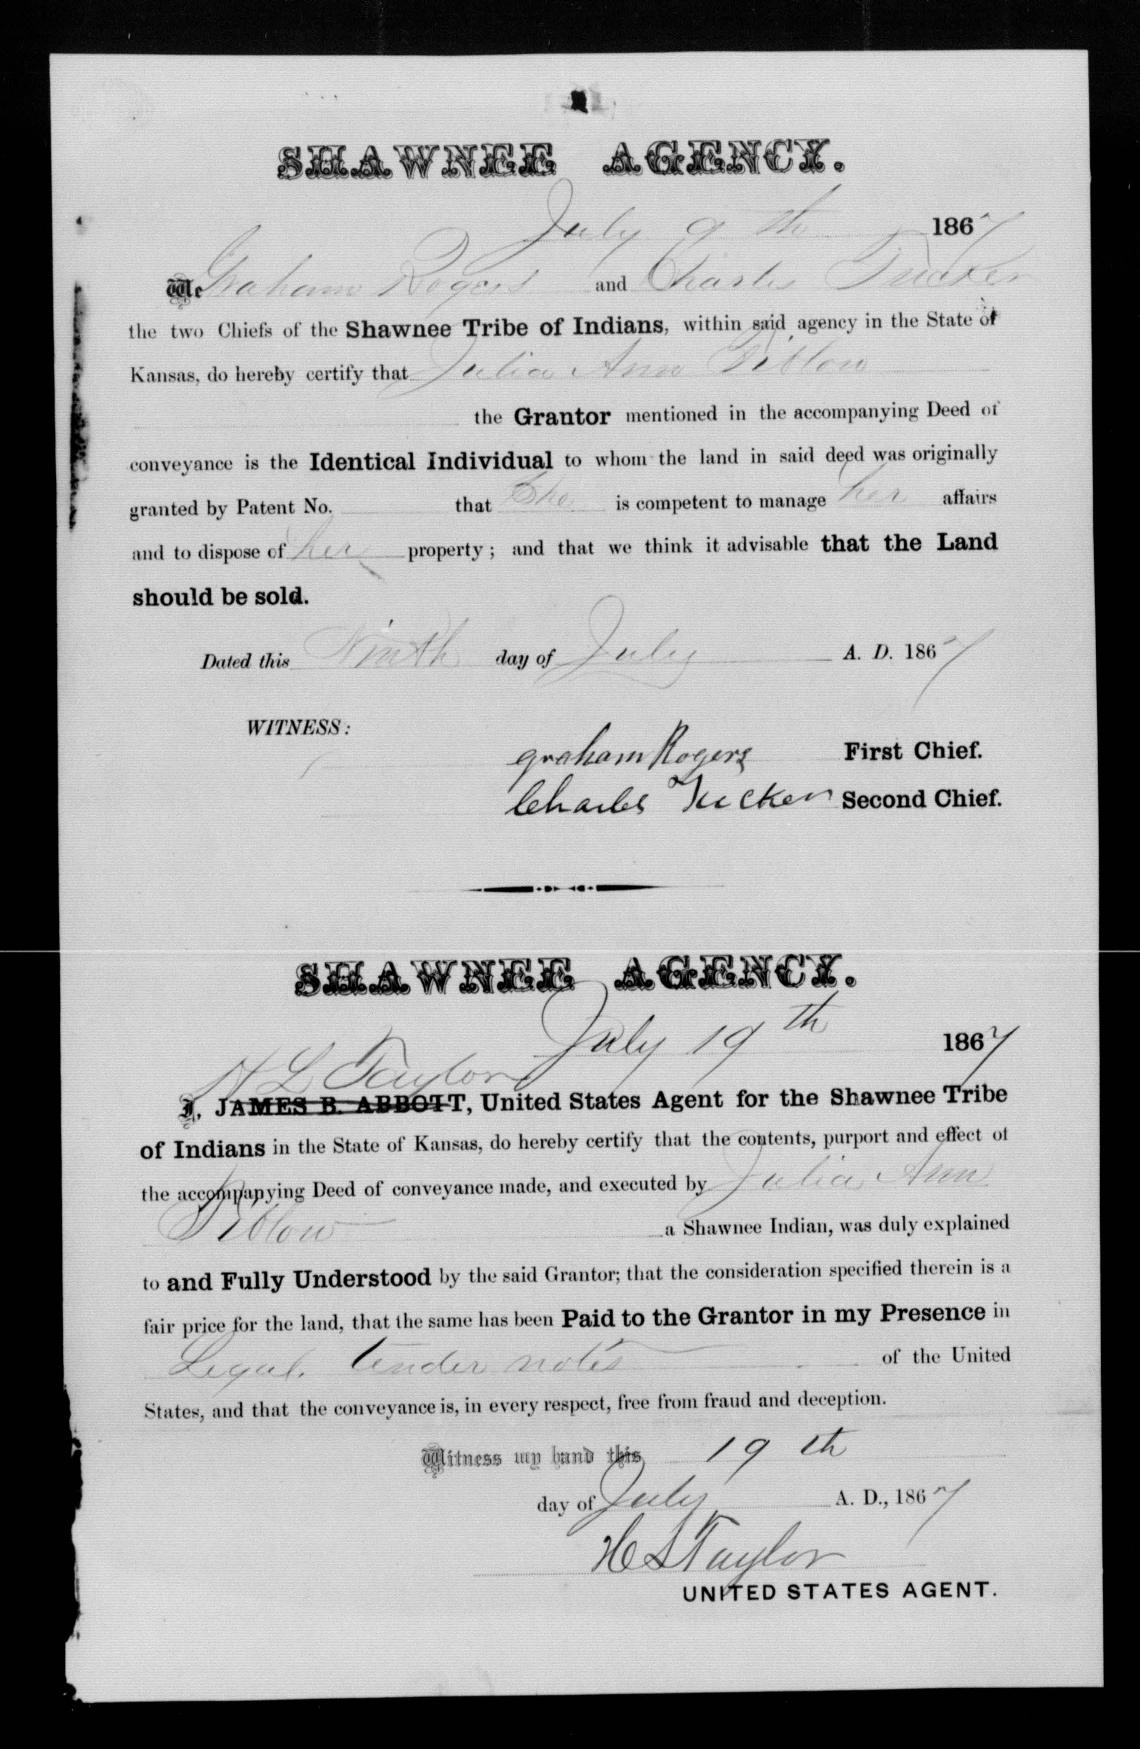 SHAWNEE AGENCY.
July 9th 1867
We Graham Rogers and Charles Tucker
the two Chiefs of the Shawnee Tribe of Indians, within said agency in the State of
Kansas, do hereby certify that Julia Ann Tiblow
the Grantor mentioned in the accompanying Deed of
conveyance is the Identical Individual to whom the land in said deed was originally
granted by Patent No. that She is competent to manage her affairs
and to dispose of her property; and that we think it advisable that the Land
should be sold.
Dated this Ninth day of July A. D. 1867
WITNESS:
graham Rogers First Chief.
Charles Tucker Second Chief.
SHAWNEE AGENCY.
July 19th 1867
H L Taylor
I, JAMES B. ABBOTT, United States Agent for the Shawnee Tribe
of Indians in the State of Kansas, do hereby certify that the contents, purport and effect of
the accompanying Deed of conveyance made, and executed by Julia Ann
Tiblow a Shawnee Indian, was duly explained
to and Fully Understood by the said Grantor; that the consideration specified therein is a
fair price for the land, that the same has been Paid to the Grantor in my Presence in
Legal tender notes of the United
States, and that the conveyance is, in every respect, free from fraud and deception.
Witness my hand this 19th
day of July A. D., 1867
H L Taylor
UNITED STATES AGENT.